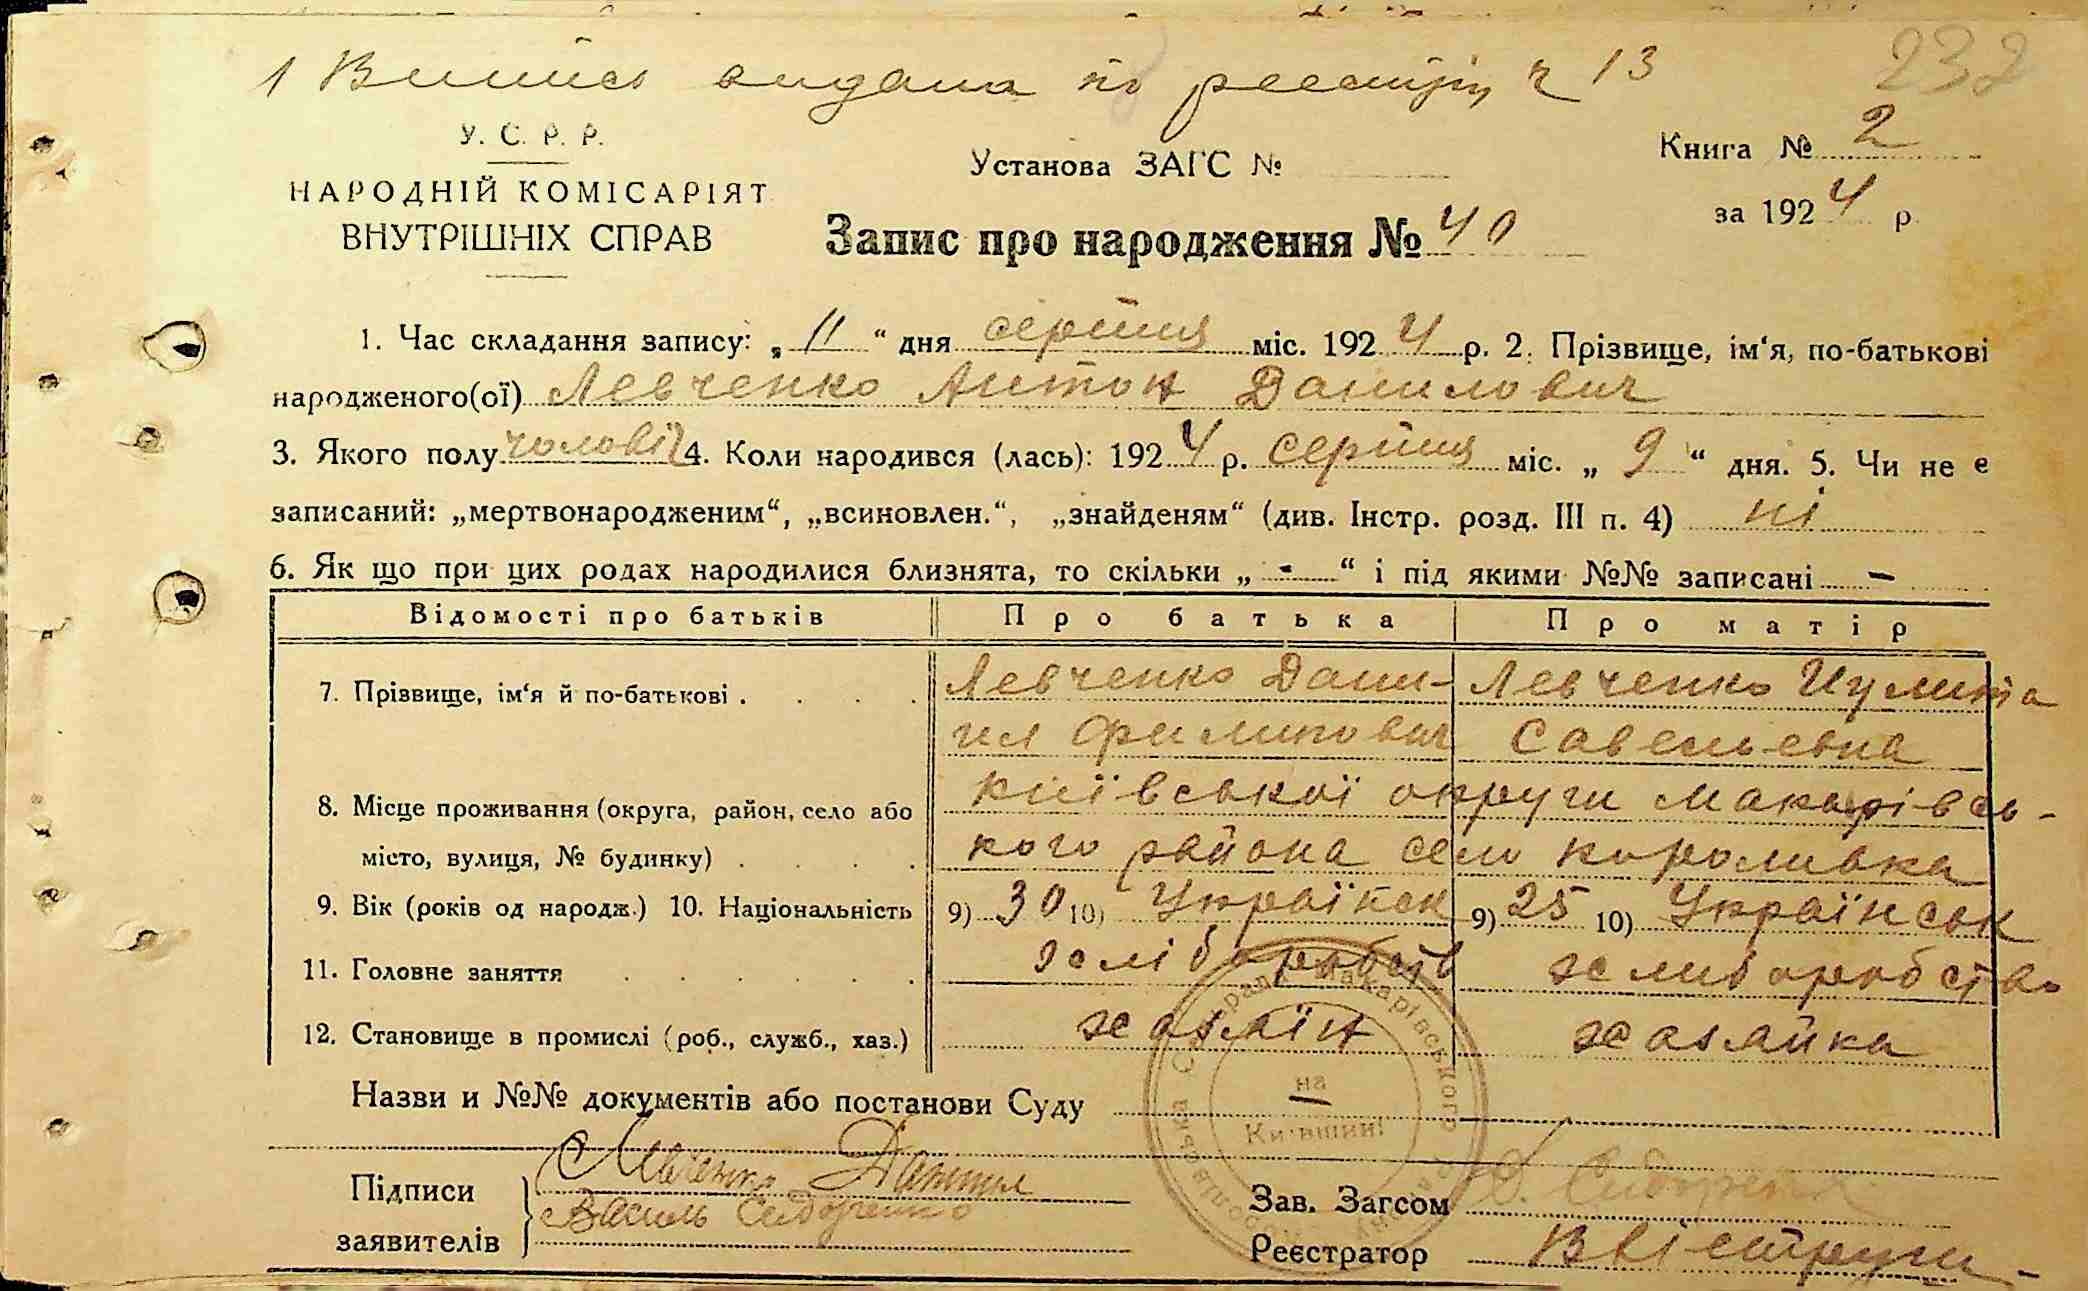 1 Випись видана по реєстру ч 13
232
У. С. Р. Р.
НАРОДНІЙ КОМІСАРІЯТ
ВНУТРІШНІХ СПРАВ
Установа ЗАГС №
Книга № 2
за 1924 р.
Запис про народження № 40
1. Час складання запису: „11“ дня серпня міс. 1924 р. 2. Прізвище, ім‘я, по-батькові
народженого(ої) Левченко Антон Данилович
3. Якого полу чоловіч 4. Коли народився (лась): 1924 р. серпня міс. „9“ дня. 5. Чи не є
записаний: „мертвонародженим“, „всиновлен.“, „знайденям“ (див. Інстр. розд. III п. 4) ні
6. Як що при цих родах народилися близнята, то скільки „-“ і під якими №№ записані -
Відомості про батьків Про батька Про матір
7. Прізвище, ім‘я й по-батькові . . . . Левченко Дани- Левченко Иулита
ил Филипович Савельевна
8. Місце проживання (округа, район, село або київської округи Макарівсь-
місто, вулиця, № будинку) . . . кого района село королівка
9. Вік (років од народж.) 10. Національність 9) 30 10) Українск 9) 25 10) Українськ
11. Головне заняття . . . . . хліборобств хлиборобство
12. Становище в промислі (роб., служб., хаз.) хазяїн хазяйка
Назви и №№ документів або постанови Суду
на
Київщині
Підписи
заявителів
Левченко Данил
Василь Сидоренко
Зав. Загсом Сидоренко
Реєстратор